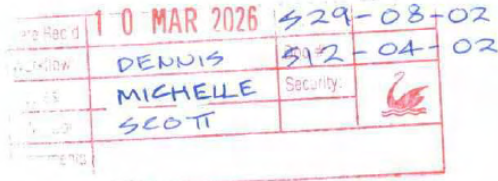 Date Rec'd 10 MAR 2026 529-08-02
DENNIS Doc # 512-04-02
MICHELLE Security:
SCOTT